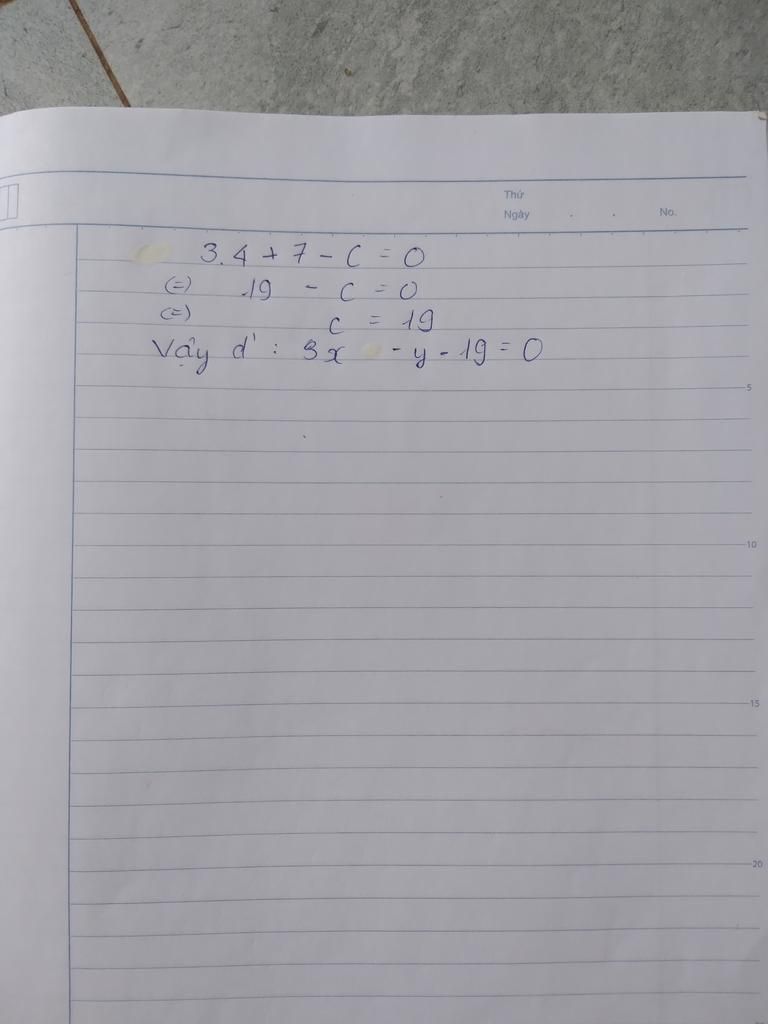 Thứ
Ngày . . No.
3.4 + 7 - c = 0
(=) 19 - c = 0
(=) c = 19
Vậy d' : 3x - y - 19 = 0
5
10
15
20